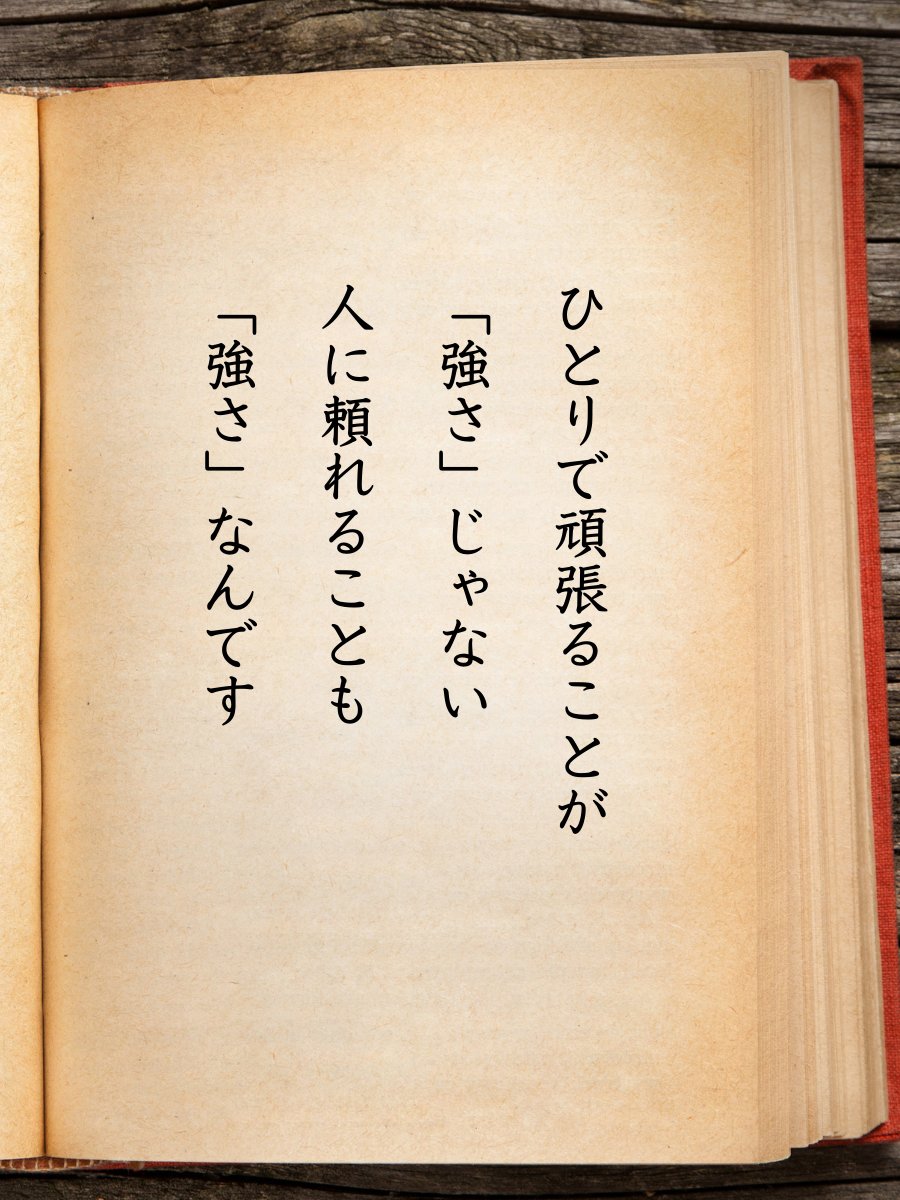 ひとりで頑張ることが
「強さ」じゃない
人に頼れることも
「強さ」なんです